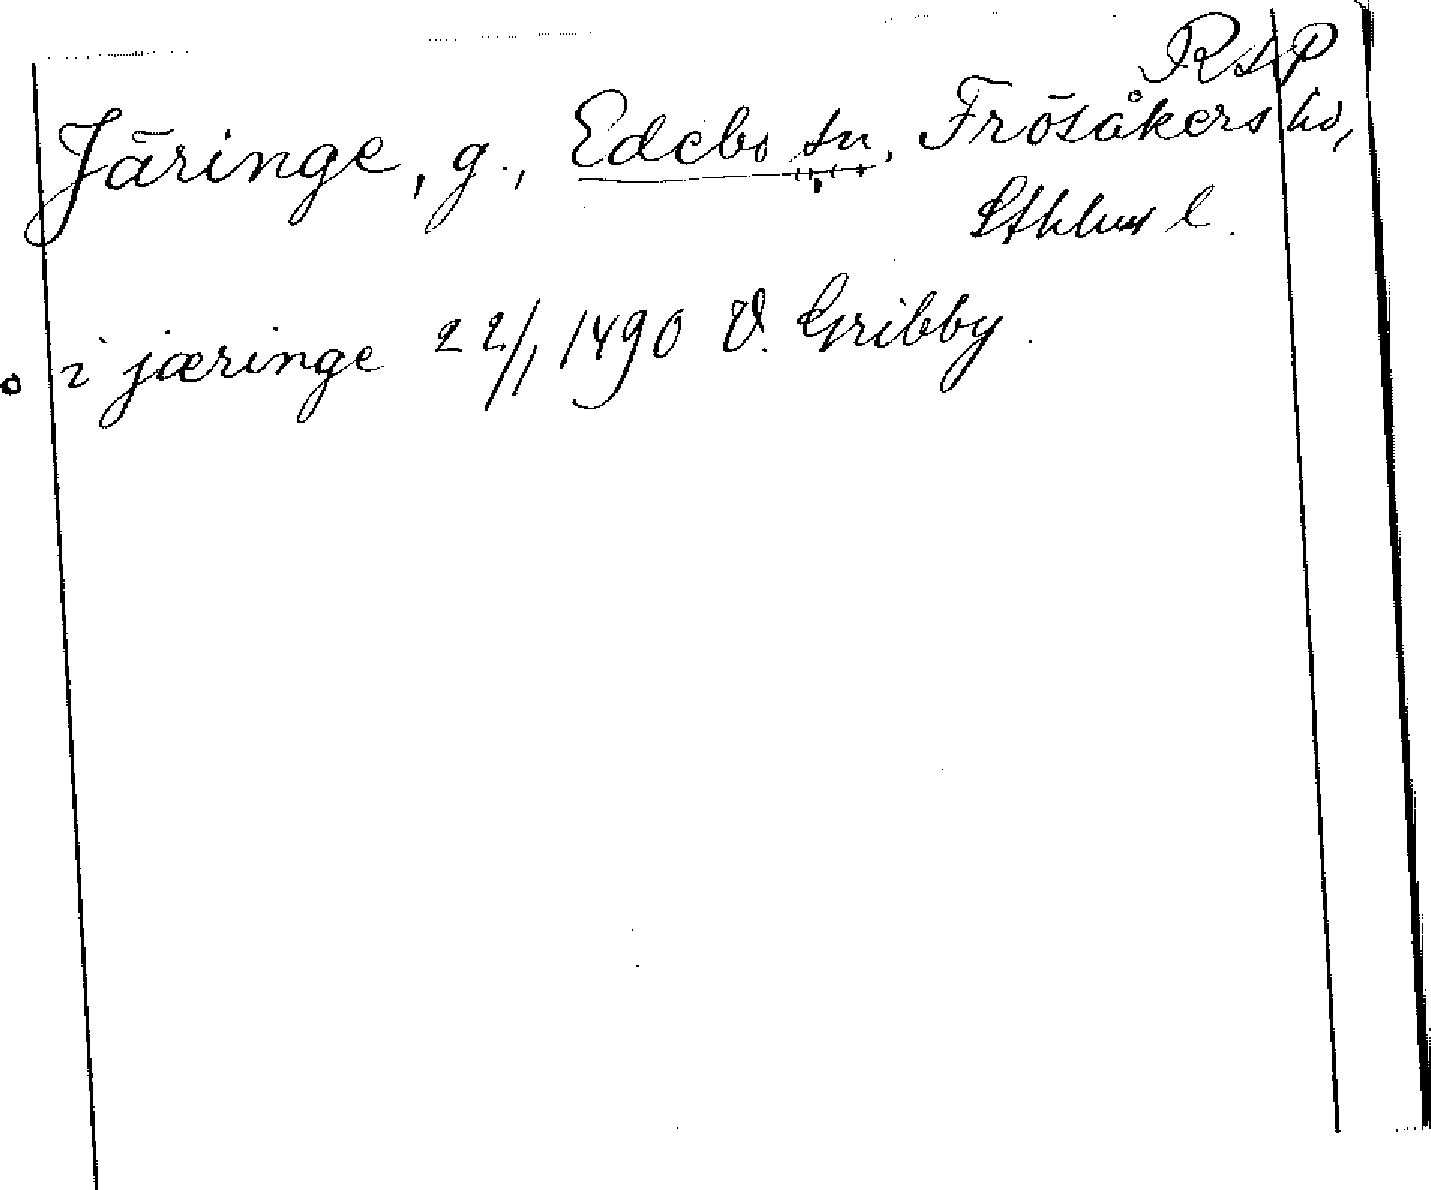 RAP
Järinge, g., Edebo sn, Frösåkers hd,
Sthlms l.
i jæringe 22/1 1490 V. Gribby